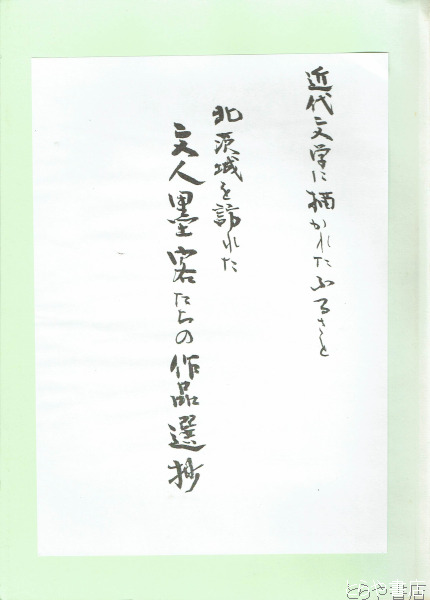 近代文学に描かれたふるさと
北茨城を訪れた
文人墨客たちの作品選抄
とらや書店